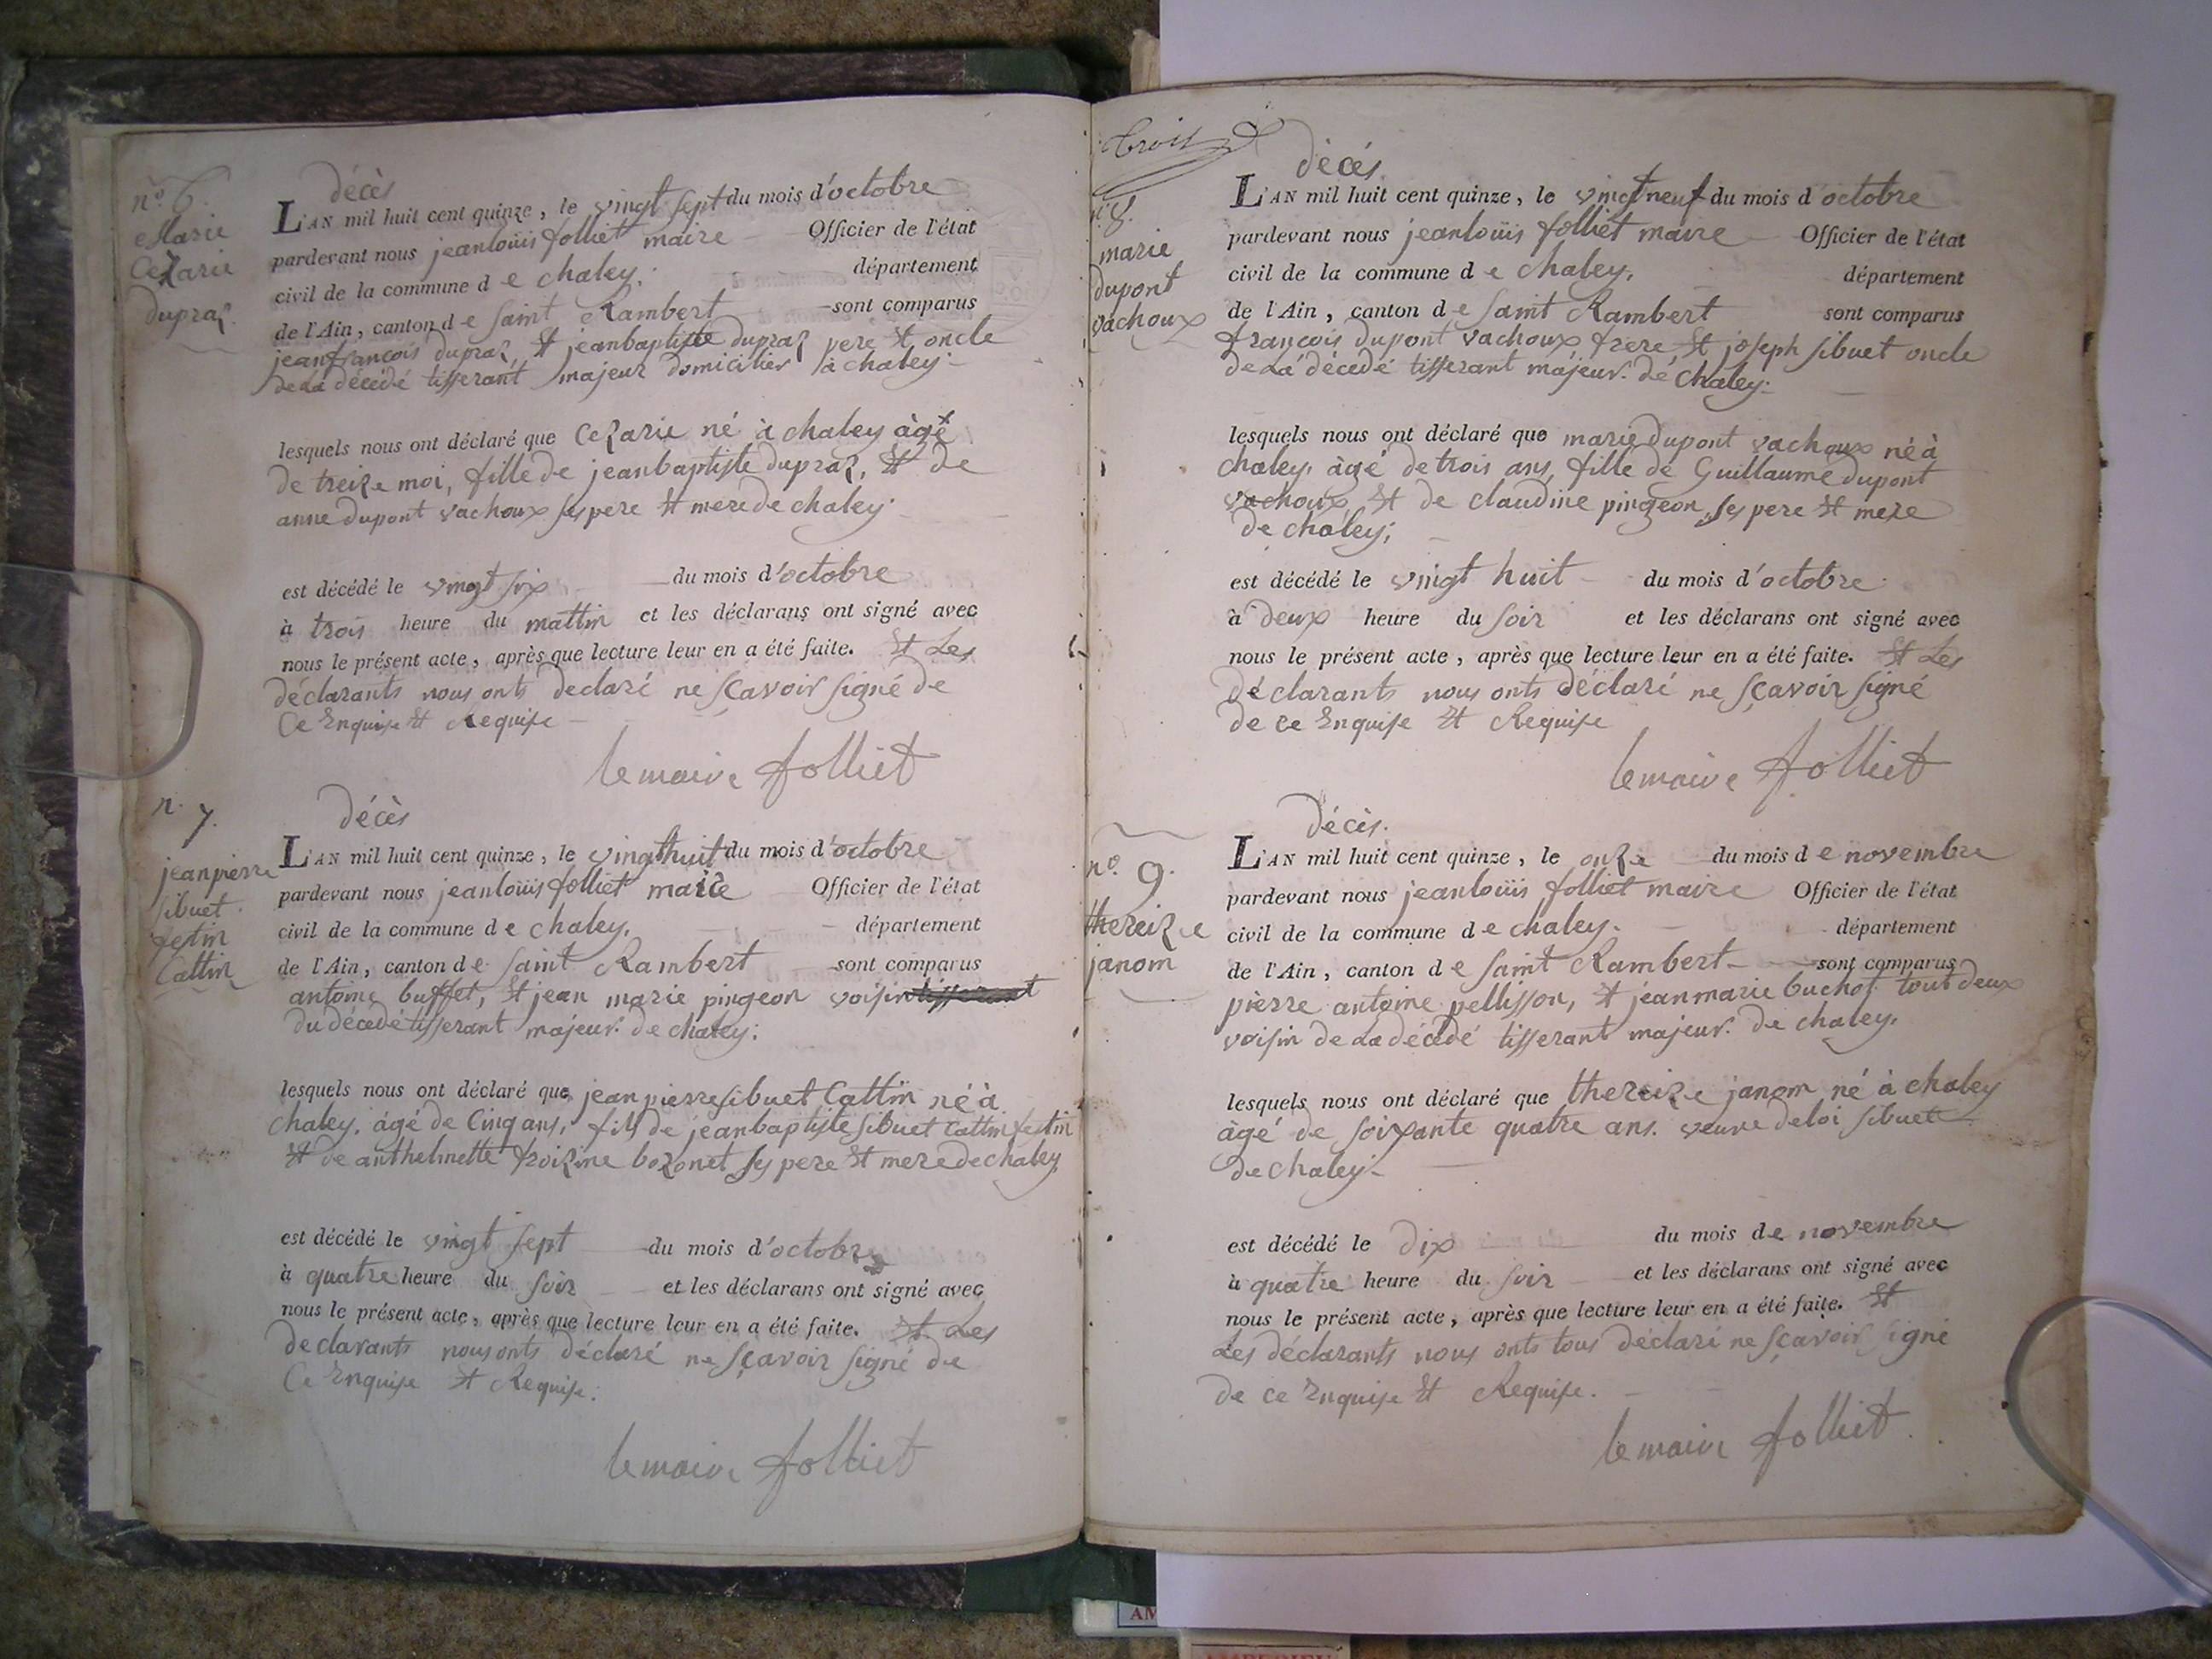 décès
n.o 6.
Marie
Cezarie
dupraz.
L'AN mil huit cent quinze, le vingt sept du mois d'octobre
pardevant nous jeanlouïs folliet maire Officier de l'état
civil de la commune de chaley. département
de l'Ain, canton de saint Rambert sont comparus
jeanfrançois dupraz, Et jeanbaptiste dupraz pere Et oncle
de La décédé tisserant majeur domicilier à chaley.
lesquels nous ont déclaré que Cezarie né à chaley âgé
de treize moi, fille de jeanbaptiste dupraz, Et de
anne dupont vachoux ses pere Et mere de chaley.
est décédé le vingt six du mois d'octobre
à trois heure du mattin et les déclarans ont signé avec
nous le présent acte, après que lecture leur en a été faite. Et Les
déclarants nous onts declaré ne sçavoir signé de
Ce Enquise Et Requise
le maire folliet
n. 7.
jeanpierre
sibuet
festin
Cattin
décès
L'AN mil huit cent quinze, le vingt huit du mois d'octobre
pardevant nous jeanlouïs folliet maire Officier de l'état
civil de la commune de chaley. département
de l'Ain, canton de saint Rambert sont comparus
antoine buffet, Et jean marie pingeon voisin tisserant
du décédé tisserant majeur. de chaley.
lesquels nous ont déclaré que jeanpierre sibuet Cattin né à
chaley. âgé de Cinq ans, fils de jeanbaptiste sibuet Cattin festin
Et de anthelmette froizine bozonet ses pere Et mere de chaley
est décédé le vingt sept du mois d'octobre
à quatre heure du soir et les déclarans ont signé avec
nous le présent acte, après que lecture leur en a été faite. Et Les
declarants nous onts déclaré ne sçavoir signé de
Ce Enquise Et Requise.
le maire folliet
trois
n.o 8.
marie
dupont
vachoux
décés
L'AN mil huit cent quinze, le vingt neuf du mois d'octobre
pardevant nous jeanlouïs folliet maire Officier de l'état
civil de la commune de chaley. département
de l'Ain, canton de saint Rambert sont comparus
françois dupont vachoux frere, Et joseph sibuet oncle
de La décedé tisserant majeur. de chaley.
lesquels nous ont déclaré que marie dupont vachoux né à
chaley. âgé de trois ans, fille de Guillaume dupont
vachoux, Et de claudine pingeon, ses pere Et mere
de chaley;
est décédé le vingt huit du mois d'octobre
à deux heure du soir et les déclarans ont signé avec
nous le présent acte, après que lecture leur en a été faite. Et Les
déclarants nous onts déclaré ne sçavoir signé
de ce Enquise Et Requise
le maire folliet
n.o 9.
thereize
janom
décès.
L'AN mil huit cent quinze, le onze du mois de novembre
pardevant nous jeanlouïs folliet maire Officier de l'état
civil de la commune de chaley. département
de l'Ain, canton de saint Rambert sont comparus
pierre antoine pellisson, Et jeanmarie buchot tout deux
voisin de La décédé tisserant majeur. de chaley.
lesquels nous ont déclaré que thereize janom né à chaley
âgé de soixante quatre ans. veuve deloi sibuet
de chaley.
est décédé le dix du mois de novembre
à quatre heure du soir et les déclarans ont signé avec
nous le présent acte, après que lecture leur en a été faite. Et
Les déclarants nous onts tous déclaré ne sçavoir signé
de ce Enquise Et Requise.
le maire folliet.